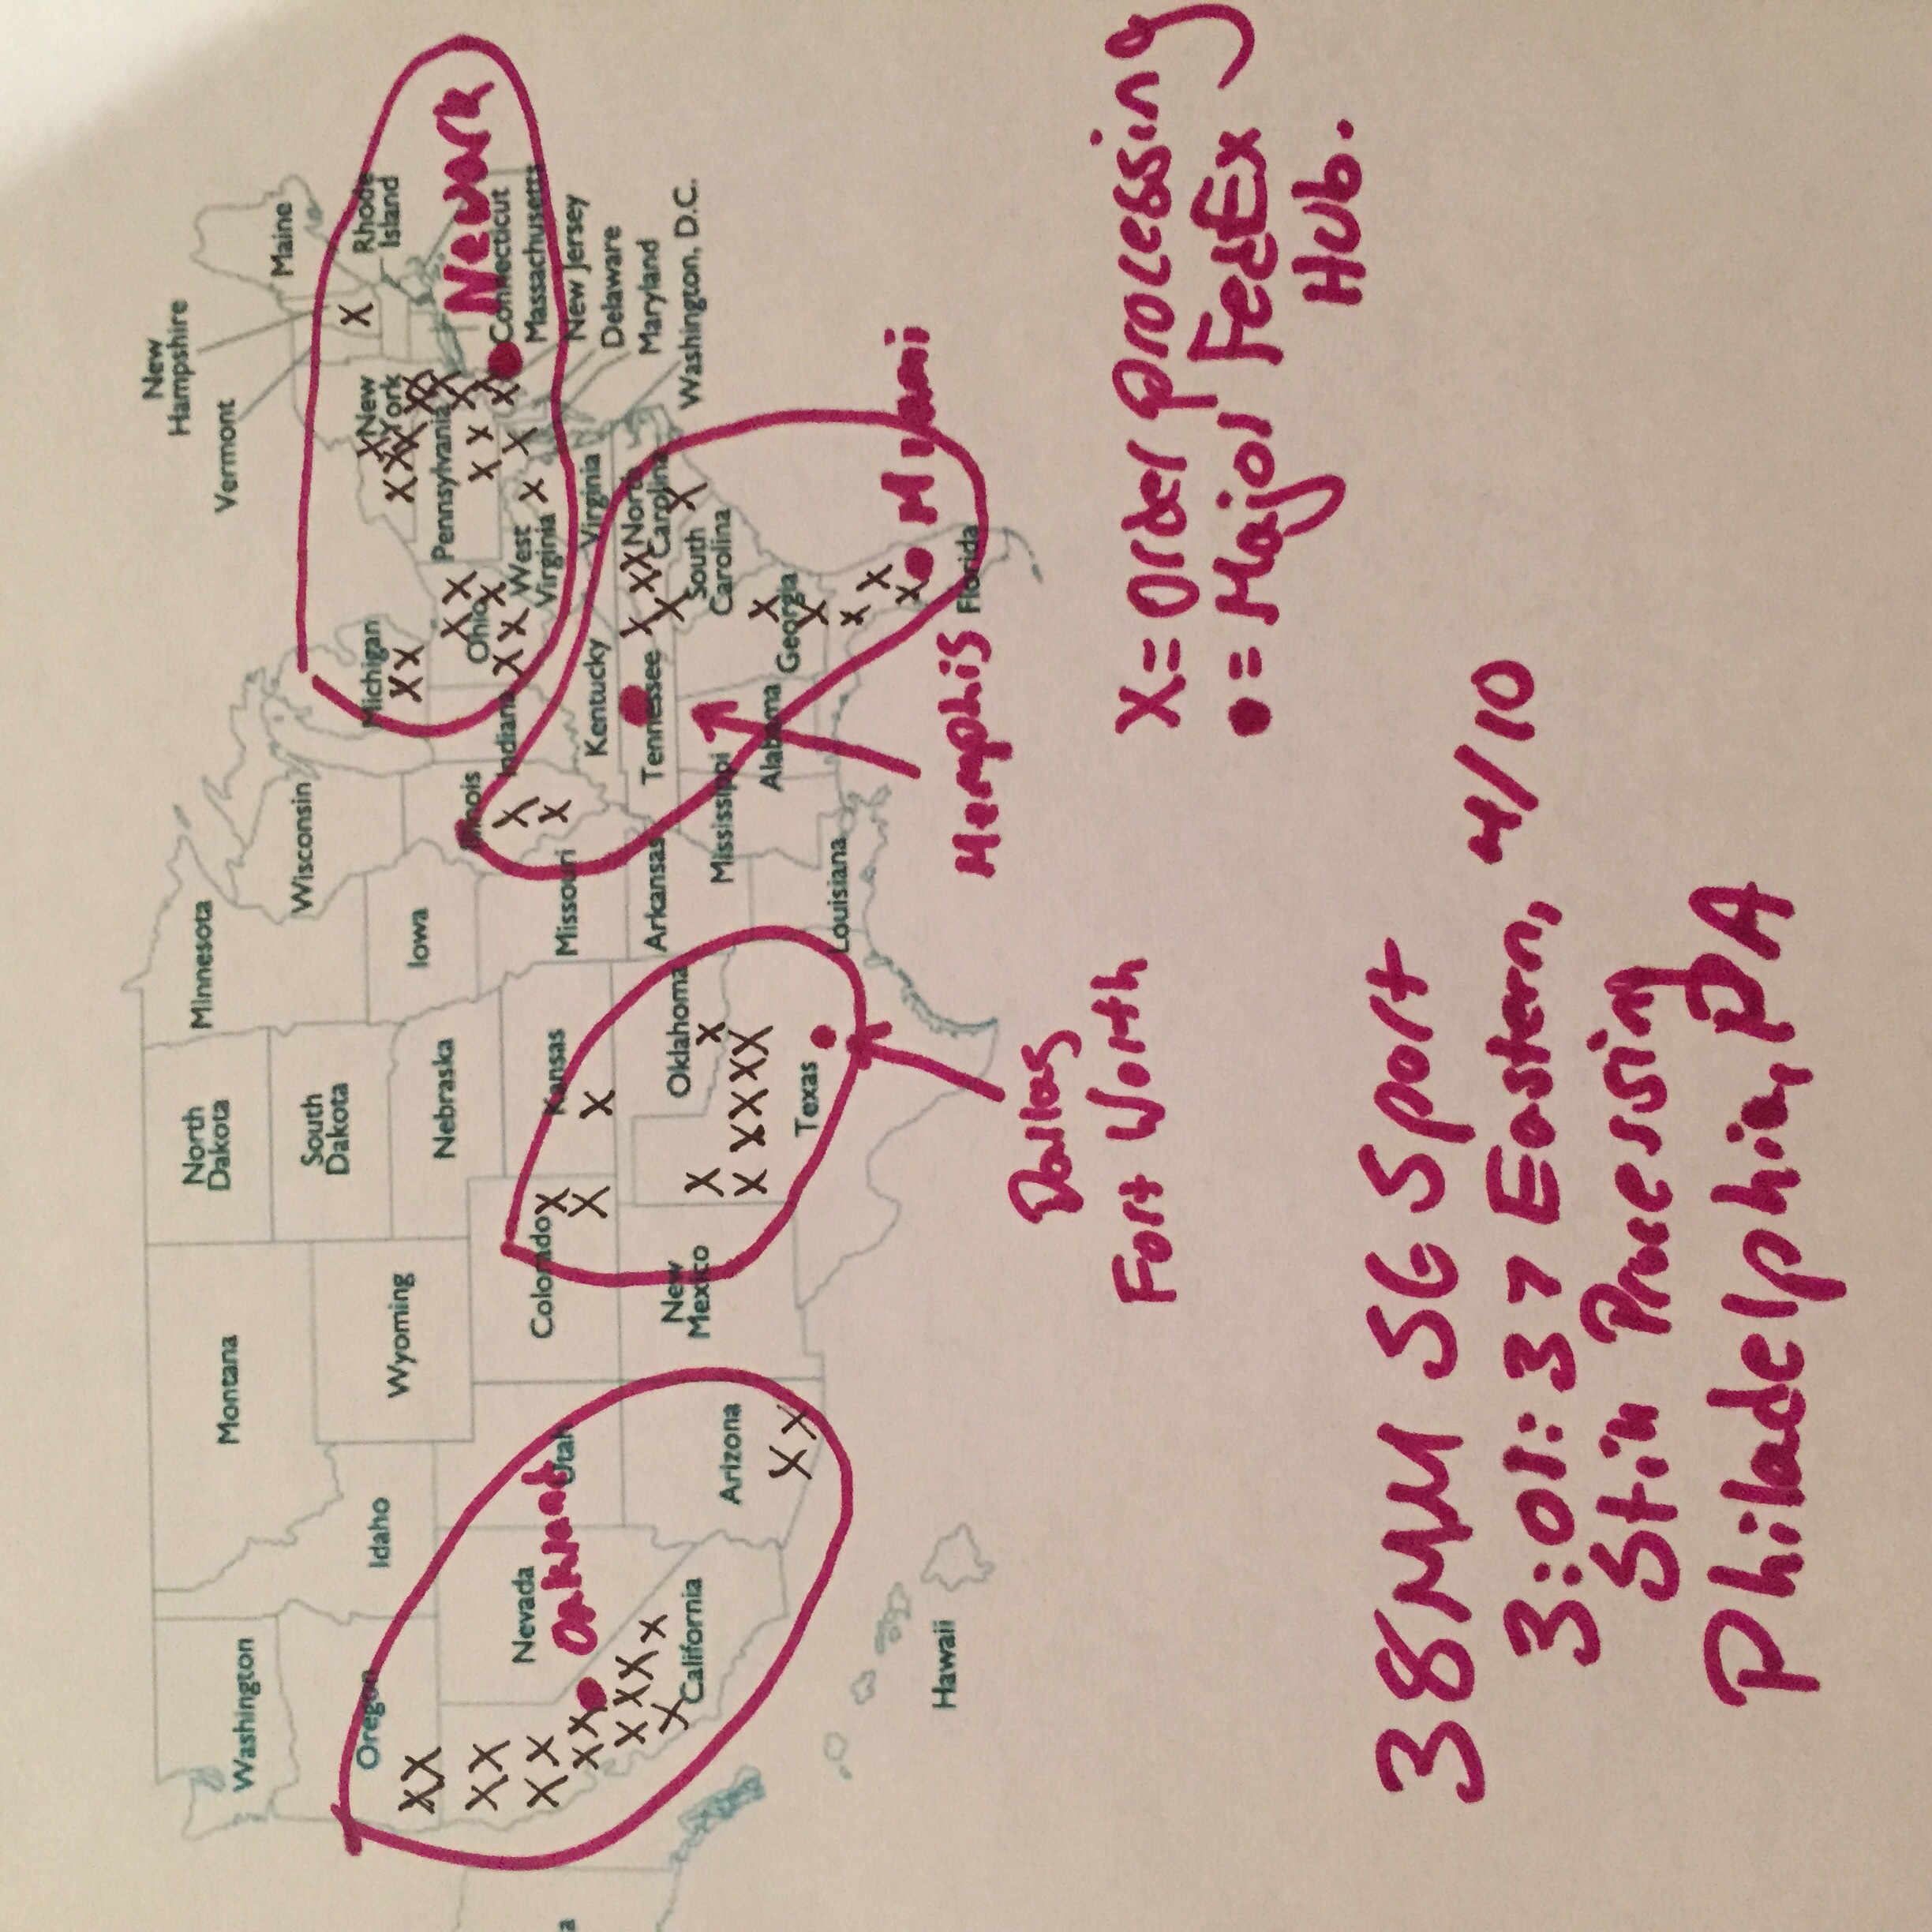 New
Hampshire
Vermont
Maine
Rhode
Island
Newark
Connecticut
Massachusetts
New Jersey
Delaware
Maryland
Washington, D.C.
Washington
Montana
North
Dakota
Minnesota
Michigan
New
York
Oregon
Idaho
Wyoming
South
Dakota
Wisconsin
Iowa
Nebraska
Illinois
Indiana
Ohio
Pennsylvania
West
Virginia
Virginia
Nevada
Oakland
Utah
Colorado
Kansas
Missouri
Kentucky
North
Carolina
California
Arizona
New
Mexico
Oklahoma
Arkansas
Tennessee
South
Carolina
Texas
Louisiana
Mississippi
Alabama
Georgia
Florida
Miami
Hawaii
Dallas
Fort Worth
Memphis
X = Order Processing
● = Major FedEx
Hub.
38MM SG Sport
3:01:37 Eastern, 4/10
Still Processing
Philadelphia, PA